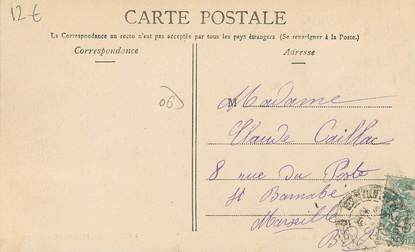 12€
CARTE POSTALE
La Correspondance au recto n'est pas acceptée par tous les pays étrangers (Se renseigner à la Poste.)
Correspondance
Adresse
06)
M Madame
Claude Caillac
8 rue du Poste
St Barnabé
Marseille